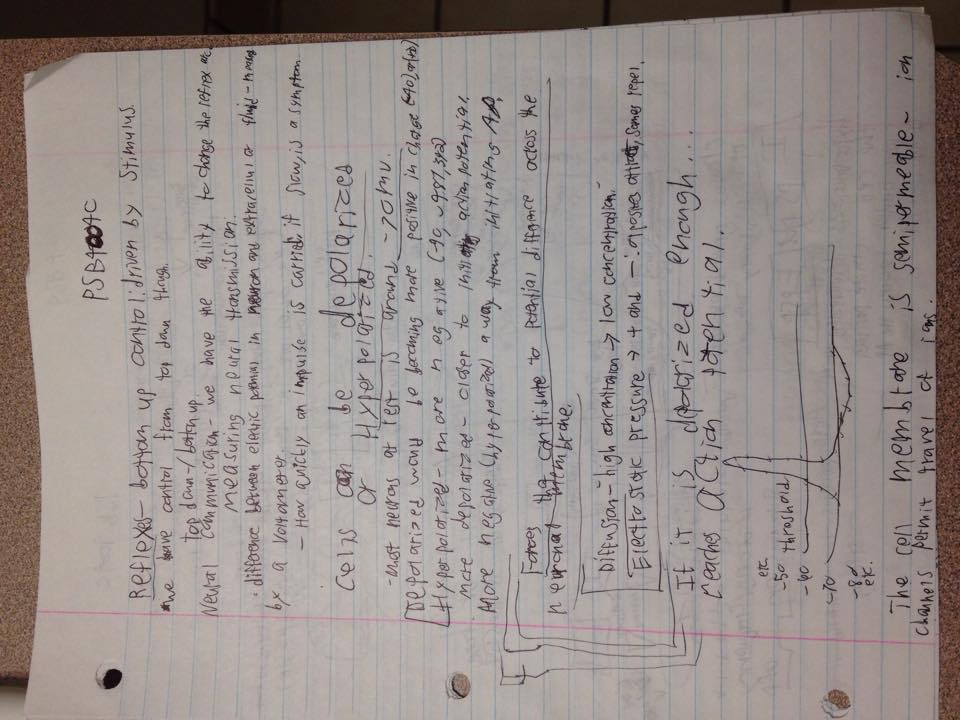 PSB4004C
Reflexes- bottom up control: driven by stimulus.
we have control from top down though.
top down-/bottom up
Neural communication- we have the ability to change the reflex arc.
measuring neural transmission.
· difference between electric potential in neuron and extracellular fluid-
by a voltometer.
- How quickly an impulse is carried if flow, is a symptom.
Cells can be depolarized
or Hyperpolarized.
- most neurons at rest is around -70 mv.
Depolarized would be becoming more positive in charge
Hyperpolarized- more negative
more depolarized- closer to initiating action potential,
More negative (hyperpolarized) away from initiating A.P.
Forces that contribute to potential difference across the
neuronal membrane.
Diffusion- high concentration → low concentration.
Electrostatic pressure → + and - : opposites attract, sames repel.
If it is depolarized enough...
reaches action potential.
etc.
-50
threshold
-60
-70
-80
etc.
The cell membrane is semipermeable- ion
channels permit travel of ions.